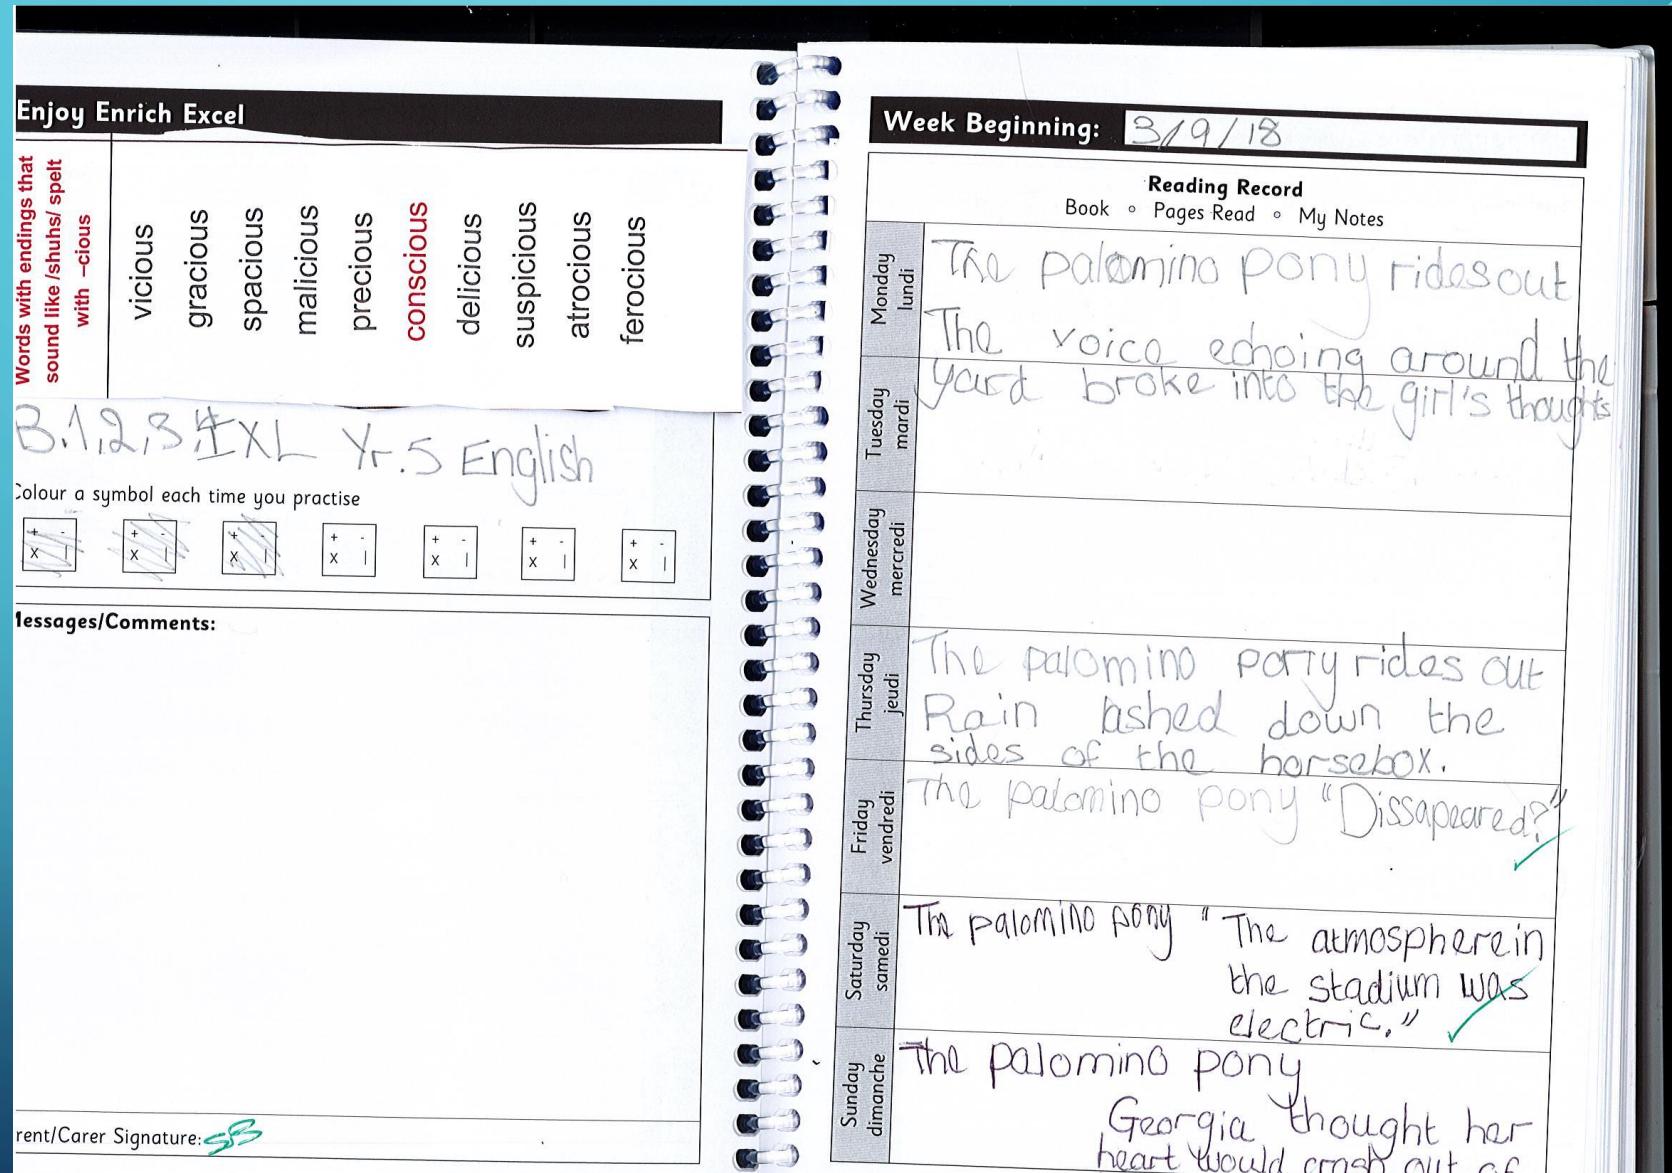 Enjoy Enrich Excel
Words with endings that
sound like /shuhs/ spelt
with –cious
vicious
gracious
spacious
malicious
precious
conscious
delicious
suspicious
atrocious
ferocious
B.1,2,3,4 IXL Yr.5 English
Colour a symbol each time you practise
+ - x |
+ - x |
+ - x |
+ - x |
+ - x |
+ - x |
+ - x |
Messages/Comments:
rent/Carer Signature: SB
Week Beginning: 3/9/18
Reading Record
Book ∘ Pages Read ∘ My Notes
Monday
lundi
The palomino pony rides out
The voice echoing around the
Tuesday
mardi
yard broke into the girl's thoughts
Wednesday
mercredi
Thursday
jeudi
The palomino pony rides out
Rain lashed down the
sides of the horsebox.
Friday
vendredi
The palomino pony "Dissapeared?"
Saturday
samedi
The palomino pony "The atmosphere in
the stadium was
electric."
Sunday
dimanche
The palomino pony
Georgia thought her
heart would crash out of